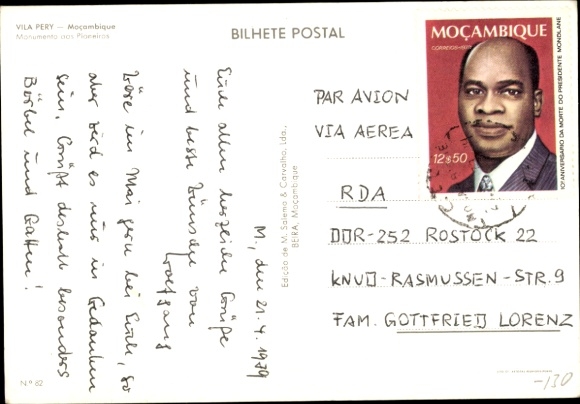 VILA PERY — Moçambique
Monumento aos Pioneiros
BILHETE POSTAL
MOÇAMBIQUE
CORREIOS
12$50
10º ANIVERSÁRIO DA MORTE DO PRESIDENTE MONDLANE
PAR AVION
VIA AEREA
RDA
DDR-252 ROSTOCK 22
KNUD-RASMUSSEN-STR. 9
FAM. GOTTFRIED LORENZ
Edição de M. Salema & Carvalho, Lda.,
BEIRA, Moçambique
M., den 21.4.1979
Euch allen herzliche Grüße
und beste Wünsche von
Wolfgang
Wäre im Mai gern bei Euch, so
aber wird es nur in Gedanken
sein. Grüßt deshalb besonders
Bärbel und Gatten!
Nº 62
-130